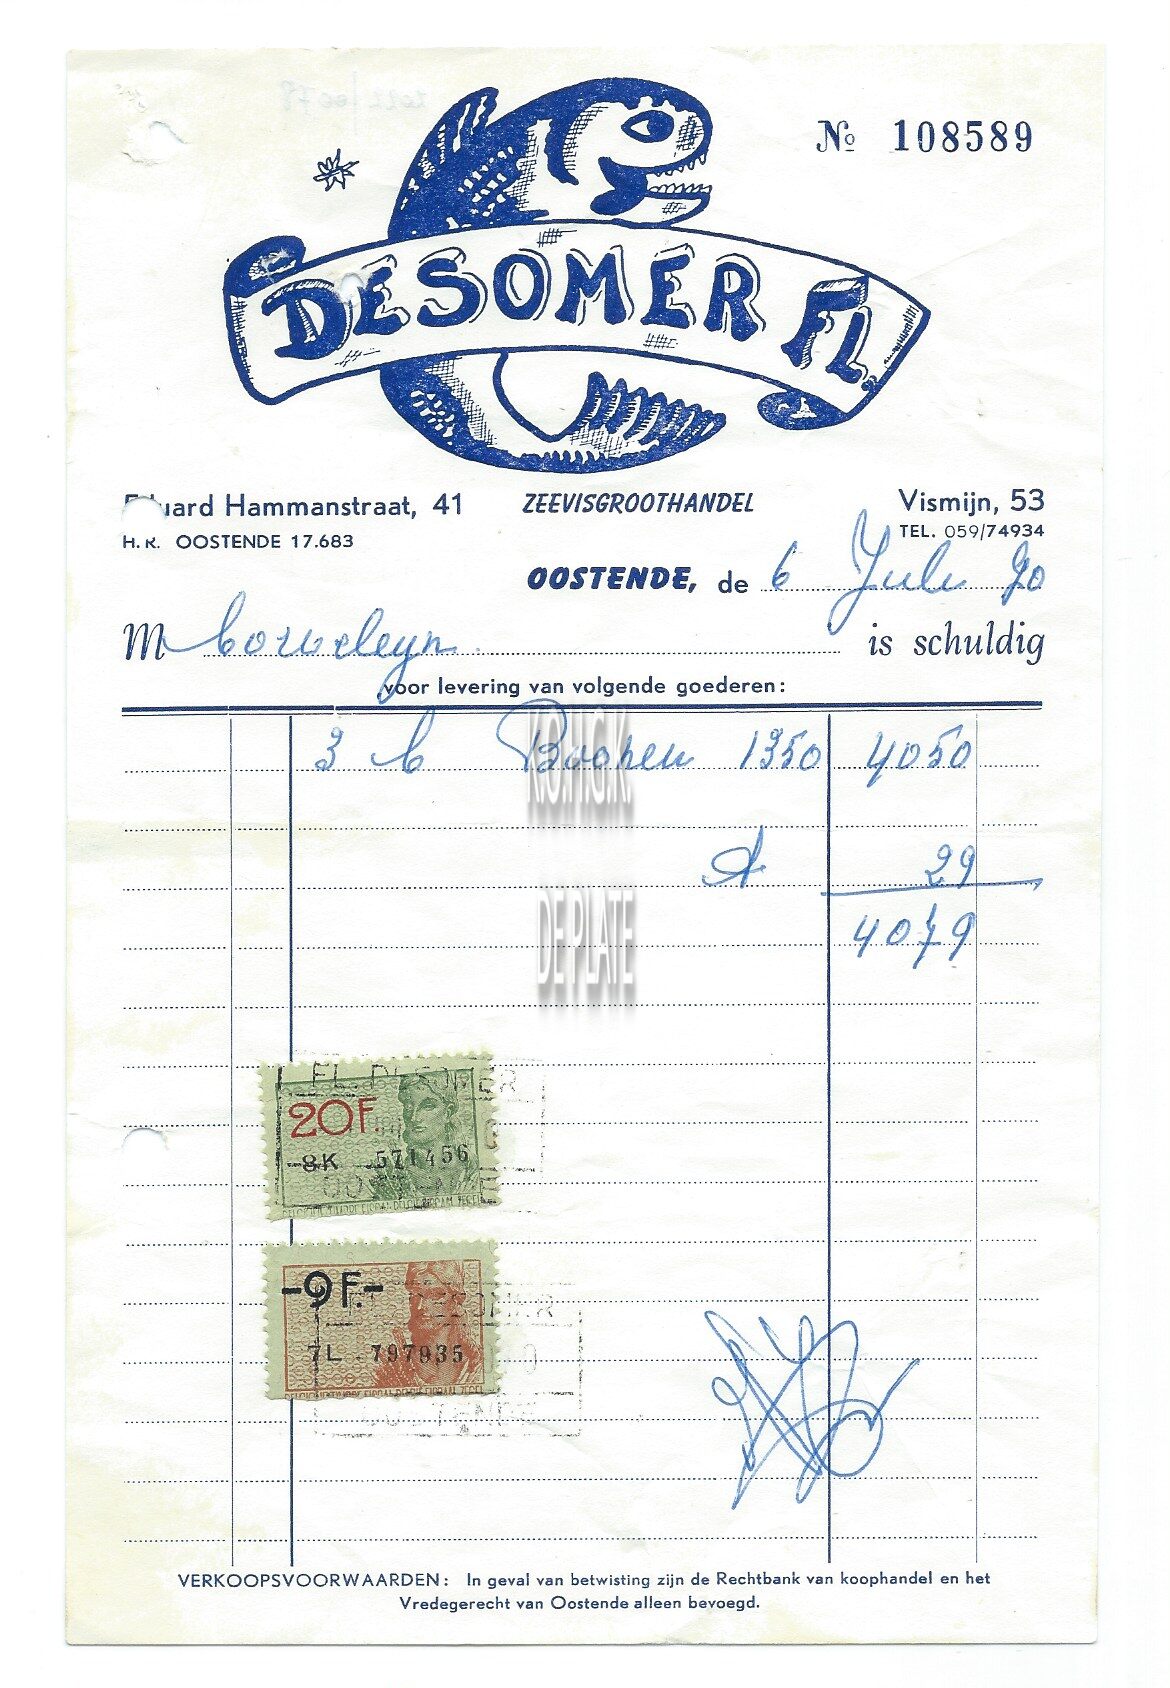 № 108589
DESOMER FL.
Eduard Hammanstraat, 41 ZEEVISGROOTHANDEL Vismijn, 53
H.R. OOSTENDE 17.683 TEL. 059/74934
OOSTENDE, de 6 Juli 70
M is schuldig
voor levering van volgende goederen:
3 1350 4050
K.O.H.G.K.
29
DE PLATE
4079
FL. DESOMER
20F.
-8K 571456
OOSTENDE
-9F.-
FL. DESOMER
7L 797935
OOSTENDE
VERKOOPSVOORWAARDEN: In geval van betwisting zijn de Rechtbank van koophandel en het
Vredegerecht van Oostende alleen bevoegd.